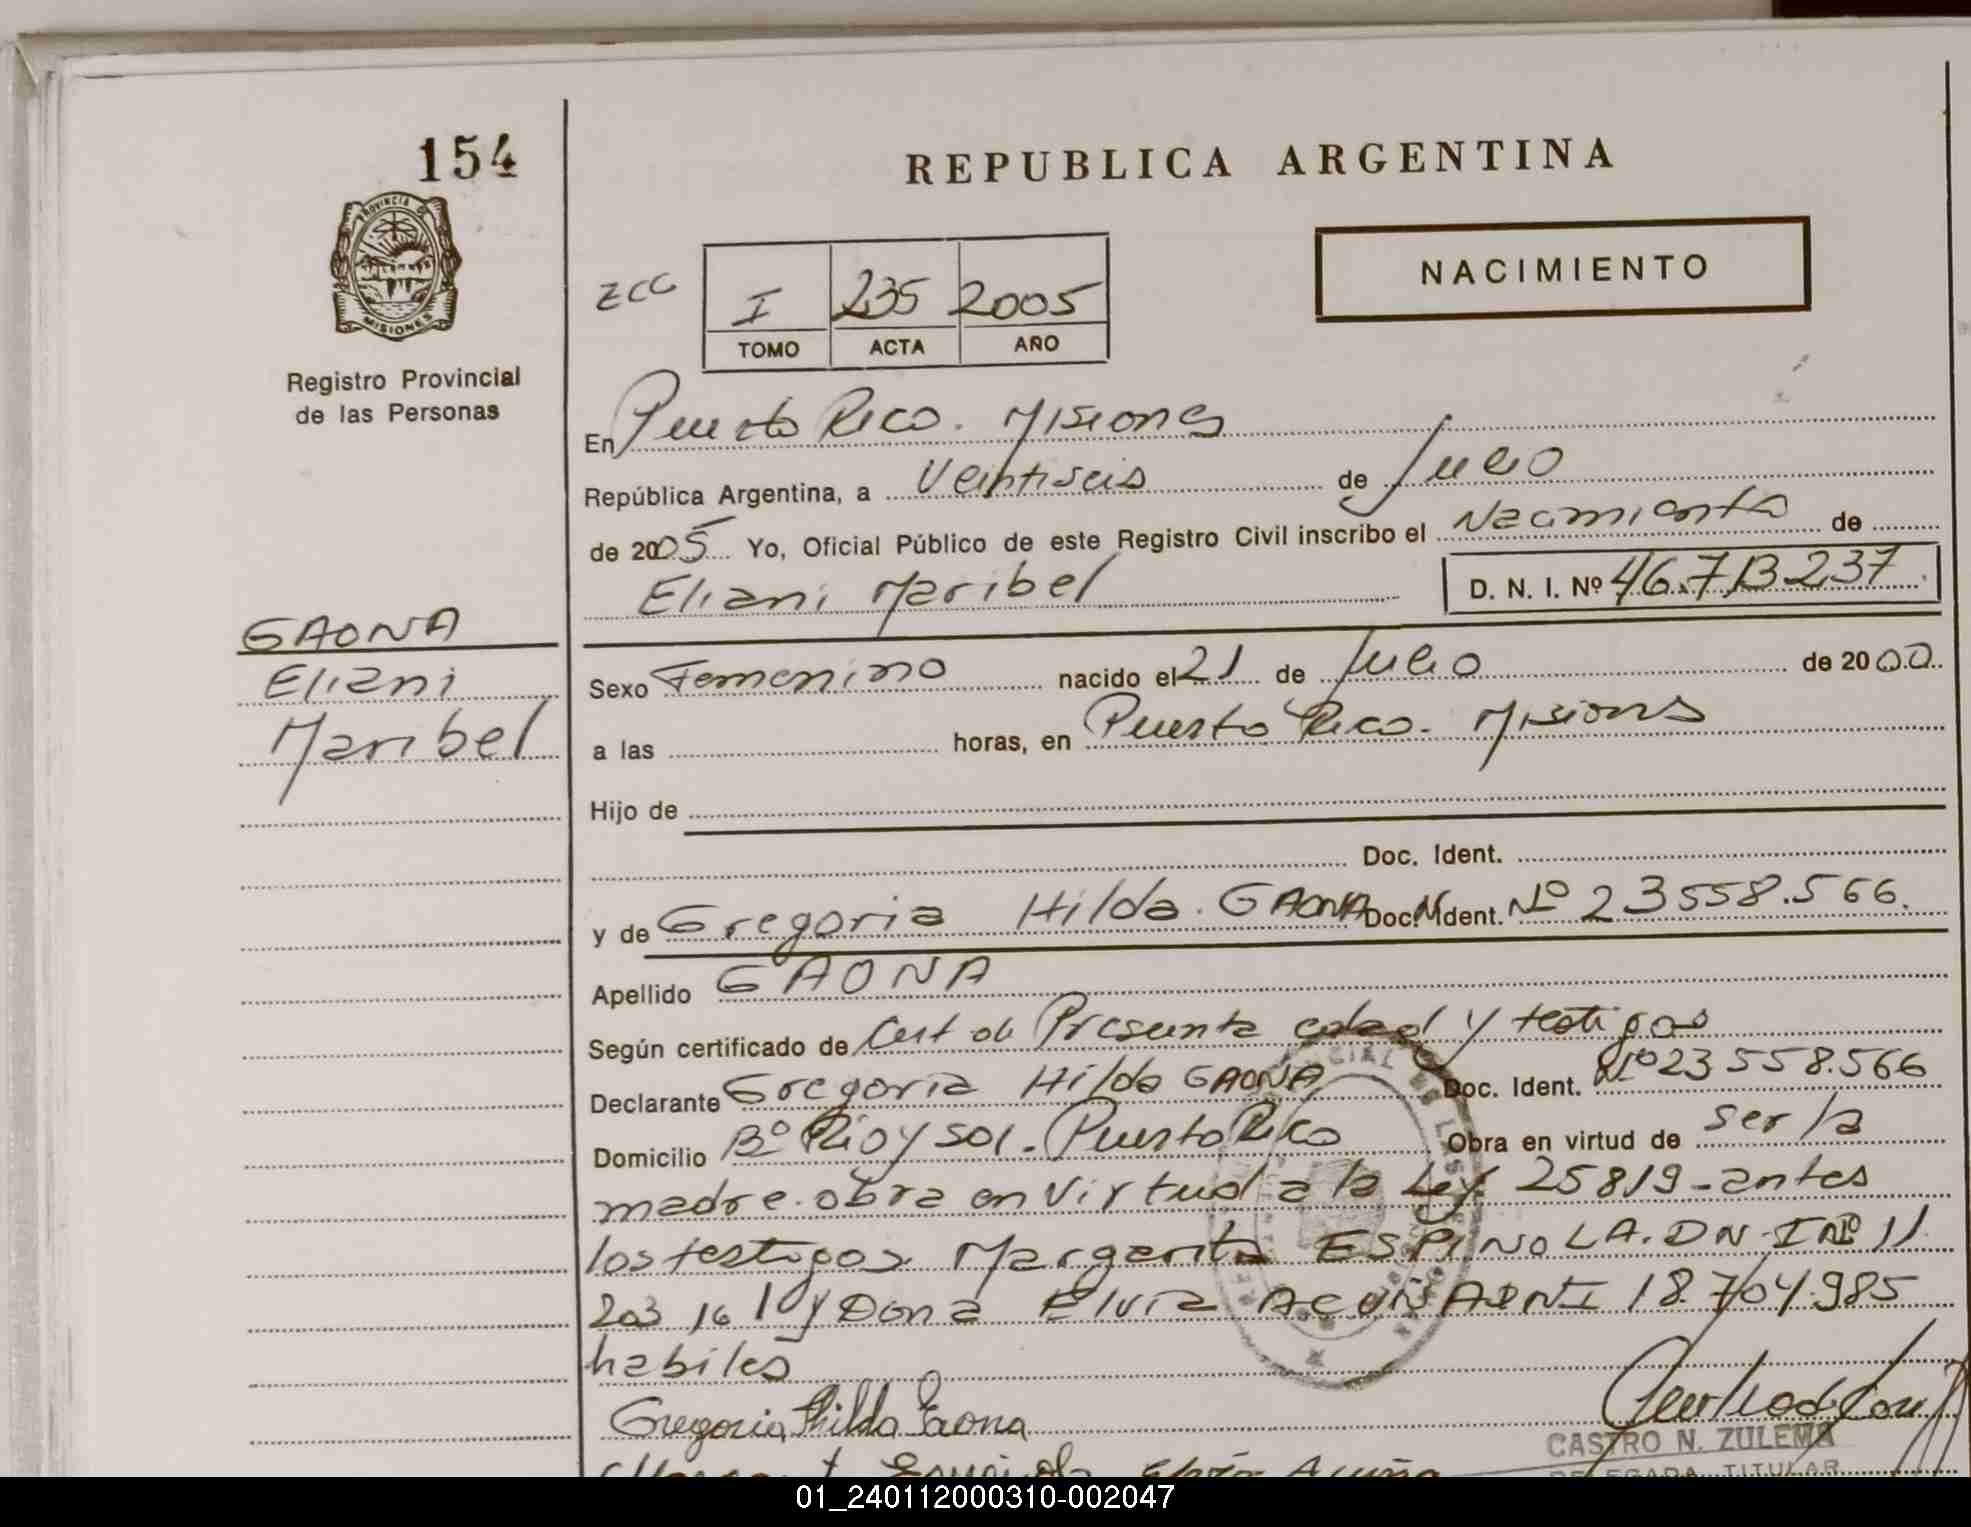 154
REPUBLICA ARGENTINA
PROVINCIA DE
MISIONES
NACIMIENTO
ZCC
I 235 2005
TOMO ACTA AÑO
Registro Provincial
de las Personas
En Puerto Rico. Misiones
República Argentina, a Veintiseis de Julio
de 2005 Yo, Oficial Público de este Registro Civil inscribo el Nacimiento de
Eliani Maribel D. N. I. Nº 46.713.237
GAONA
Eliani
Maribel
Sexo Femenino nacido el 21 de Julio de 2000
a las horas, en Puerto Rico. Misiones
Hijo de
Doc. Ident.
y de Gregoria Hilda. GAONA Doc. Ident. Nº 23558.566.
Apellido GAONA
Según certificado de Cert de Presunta edad y testigos
Declarante Gregoria Hilda GAONA Doc. Ident. Nº 23558.566
Domicilio Bº Rio y Sol. Puerto Rico Obra en virtud de ser la
madre. obra en virtud a la Ley 25819-antes
los testigos Margarita ESPINOLA. DNI Nº 11
203 161 y Dona Elvia ACUÑA DNI 18.704.985
habiles
Gregoria Hilda Gaona
CASTRO N. ZULEMA
DELEGADA TITULAR
Espinola Elvia Acuña
01_240112000310-002047